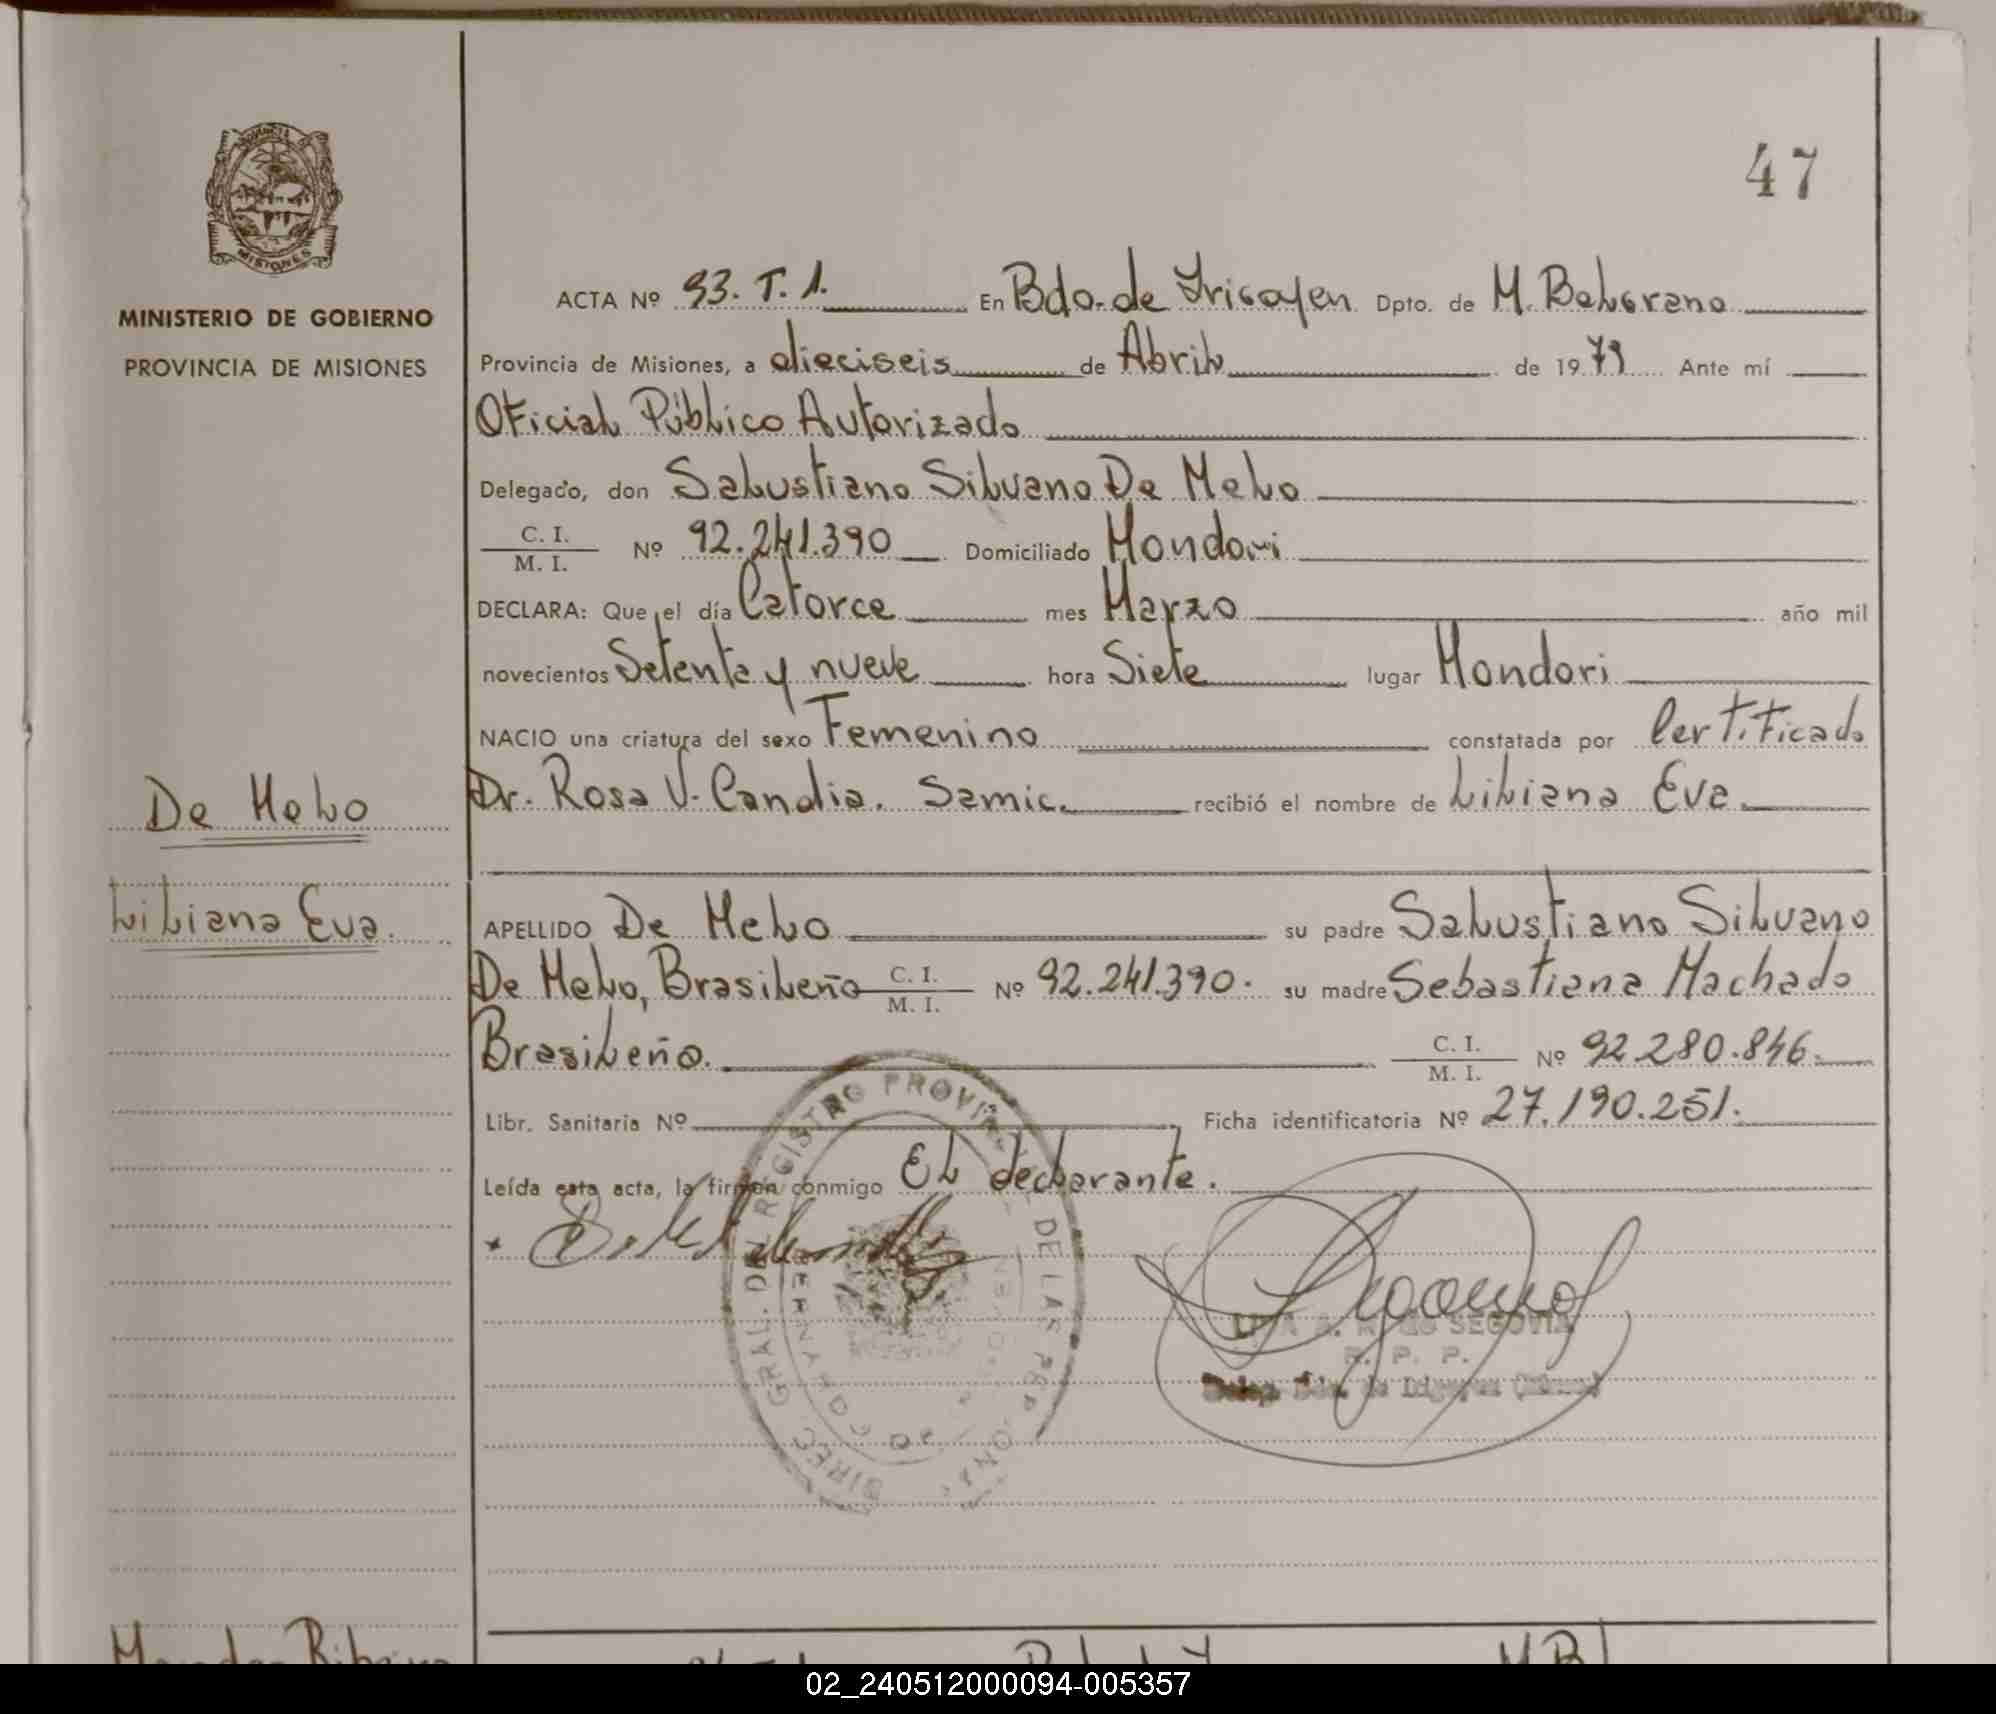 47
PROVINCIA
MISIONES
MINISTERIO DE GOBIERNO
PROVINCIA DE MISIONES
ACTA Nº 93. T. 1. En Bdo. de Irigoyen Dpto. de M. Belgrano
Provincia de Misiones, a dieciseis de Abril de 1979 Ante mí
Oficial Público Autorizado
Delegado, don Salustiano Silvano De Melo
C. I.
M. I. Nº 92.241.390 Domiciliado Mondori
DECLARA: Que el día Catorce mes Marzo año mil
novecientos Setenta y nueve hora Siete lugar Mondori
NACIO una criatura del sexo Femenino constatada por Certificado
Dr. Rosa V. Candia. Samic. recibió el nombre de Liliana Eva.
De Melo
Liliana Eva.
APELLIDO De Melo su padre Salustiano Silvano
De Melo, Brasileño C. I. M. I. Nº 92.241.390. su madre Sebastiana Machado
Brasileña. C. I. M. I. Nº 92.280.846.
Libr. Sanitaria Nº Ficha identificatoria Nº 27.190.251.
Leída esta acta, la firman conmigo El declarante.
DIREC. GRAL. DEL REGISTRO PROVINCIAL DE LAS PERSONAS
DE SEGOVIA
R. P. P.
Deleg. Bdo. de Irigoyen
02_240512000094-005357